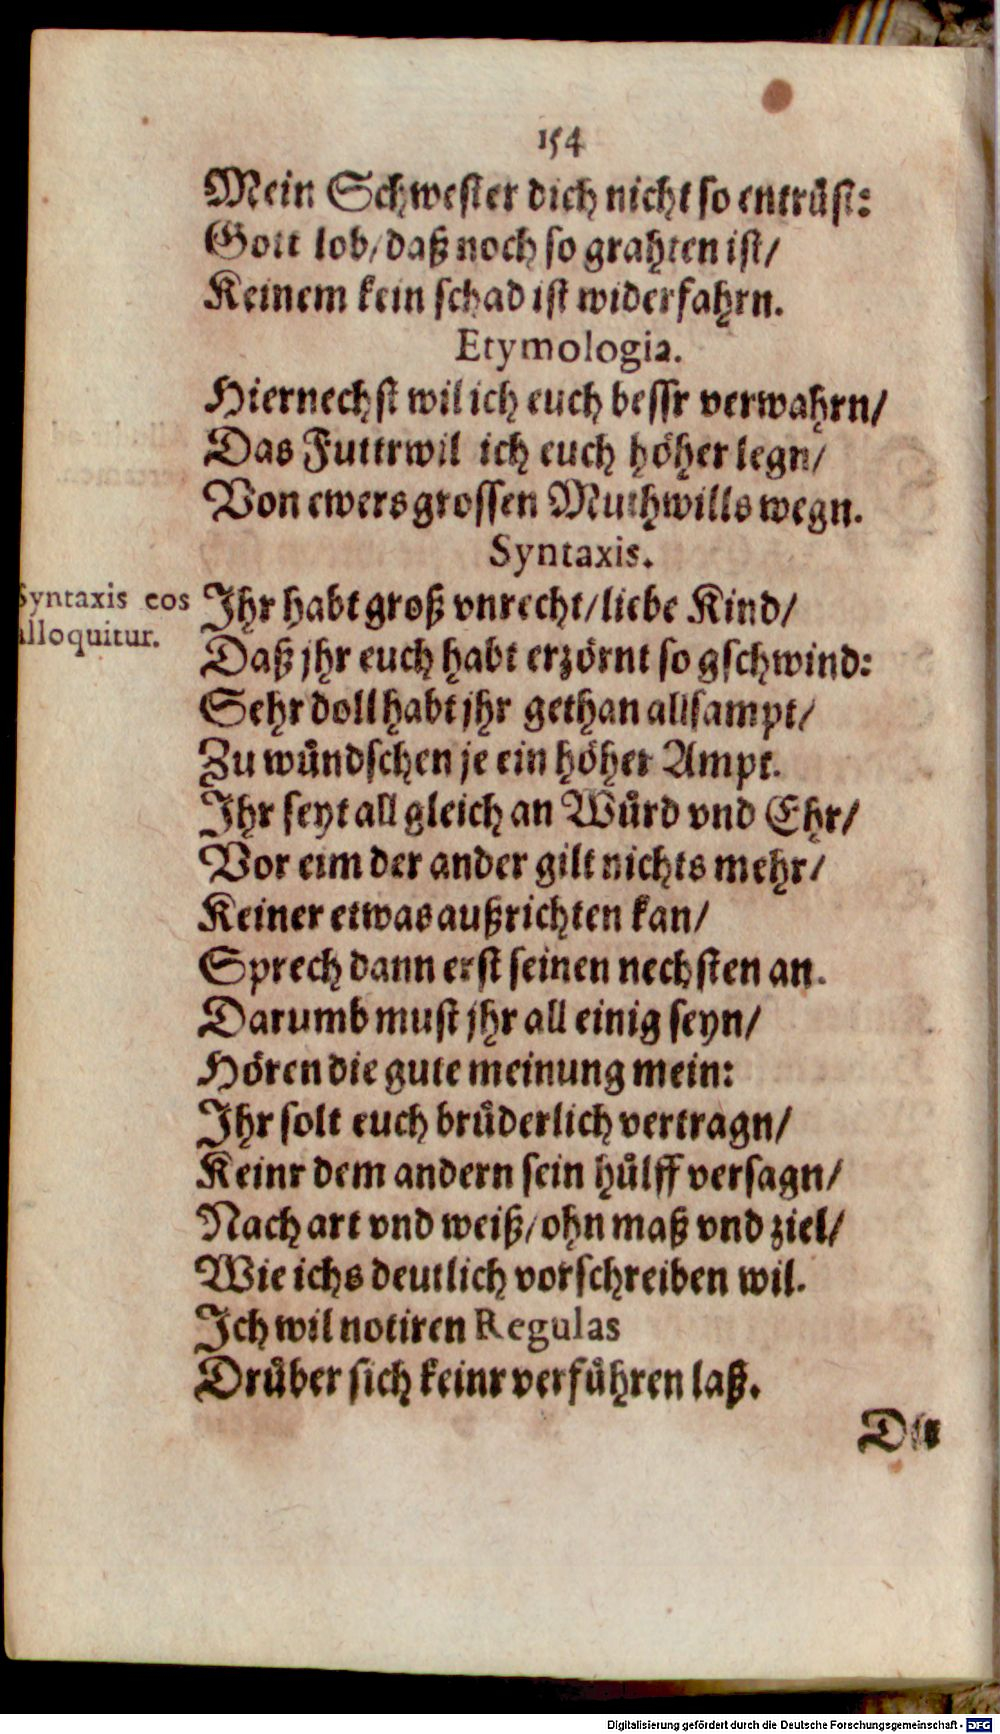 154
Mein Schwester dich nicht so entrüst:
Gott lob/ daß noch so grahten ist/
Keinem kein schad ist widerfahrn.
Etymologia.
Hiernechst wil ich euch bessr verwahrn/
Das Futtr wil ich euch höher legn/
Von ewers grossen Muthwills wegn.
Syntaxis.
Syntaxis eos
alloquitur.
Ihr habt groß vnrecht/ liebe Kind/
Daß jhr euch habt erzörnt so gschwind:
Sehr doll habt jhr gethan allsampt/
Zu wündschen je ein höher Ampt.
Ihr seyt all gleich an Würd vnd Ehr/
Vor eim der ander gilt nichts mehr/
Keiner etwas außrichten kan/
Sprech dann erst seinen nechsten an.
Darumb must jhr all einig seyn/
Hören die gute meinung mein:
Ihr solt euch brüderlich vertragn/
Keinr dem andern sein hülff versagn/
Nach art vnd weiß/ ohn maß vnd ziel/
Wie ichs deutlich vorschreiben wil.
Ich wil notiren Regulas
Drüber sich keinr verführen laß.
Digitalisierung gefördert durch die Deutsche Forschungsgemeinschaft - DFG